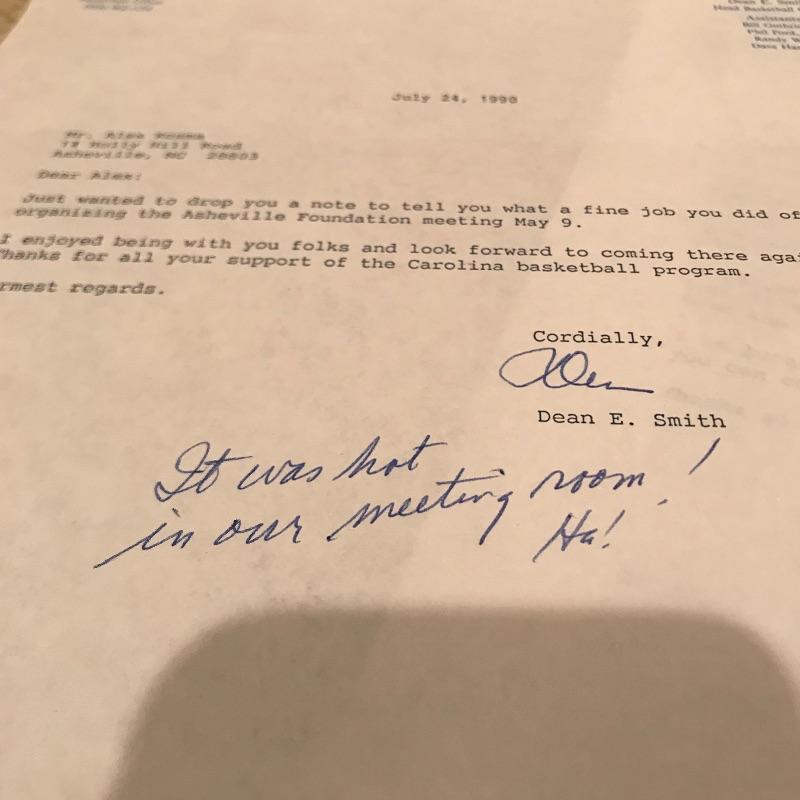 Dean E. Smith
Head Basketball
Assistants
Bill Guthridge
Phil Ford
Randy W
Dave Han
July 24, 1990
Mr. Alex
Holly Hill Road
Asheville, NC 28803
Dear Alex:
Just wanted to drop you a note to tell you what a fine job you did of
organizing the Asheville Foundation meeting May 9.
I enjoyed being with you folks and look forward to coming there agai
Thanks for all your support of the Carolina basketball program.
rmest regards.
Cordially,
Dean
Dean E. Smith
It was hot
in our meeting room!
Ha!